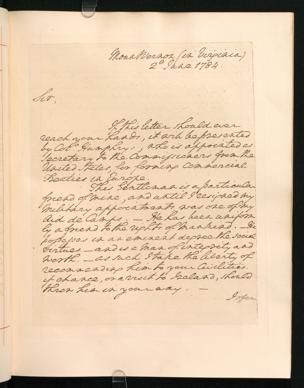 Mount Vernon (in Virginia)
2d June 1784.
Sir.
If this letter should ever
reach your hands, it will be presented
by Colo. Humphrys, who is appointed as
Secretary to the Commissioners from the
United States, for forming Commercial
Treaties in Europe.
This Gentleman is a particular
friend of mine, and until I resigned my
military appointment, was one of my
Aid de Camps. — He has been uniform
ly a friend to the rights of mankind. — He
possesses in an eminent degree the social
virtues — and is a man of integrity and
worth. — as such I take the liberty of
recommending him to your Civilities
if chance, or a visit to Ireland, should
throw him in your way. —